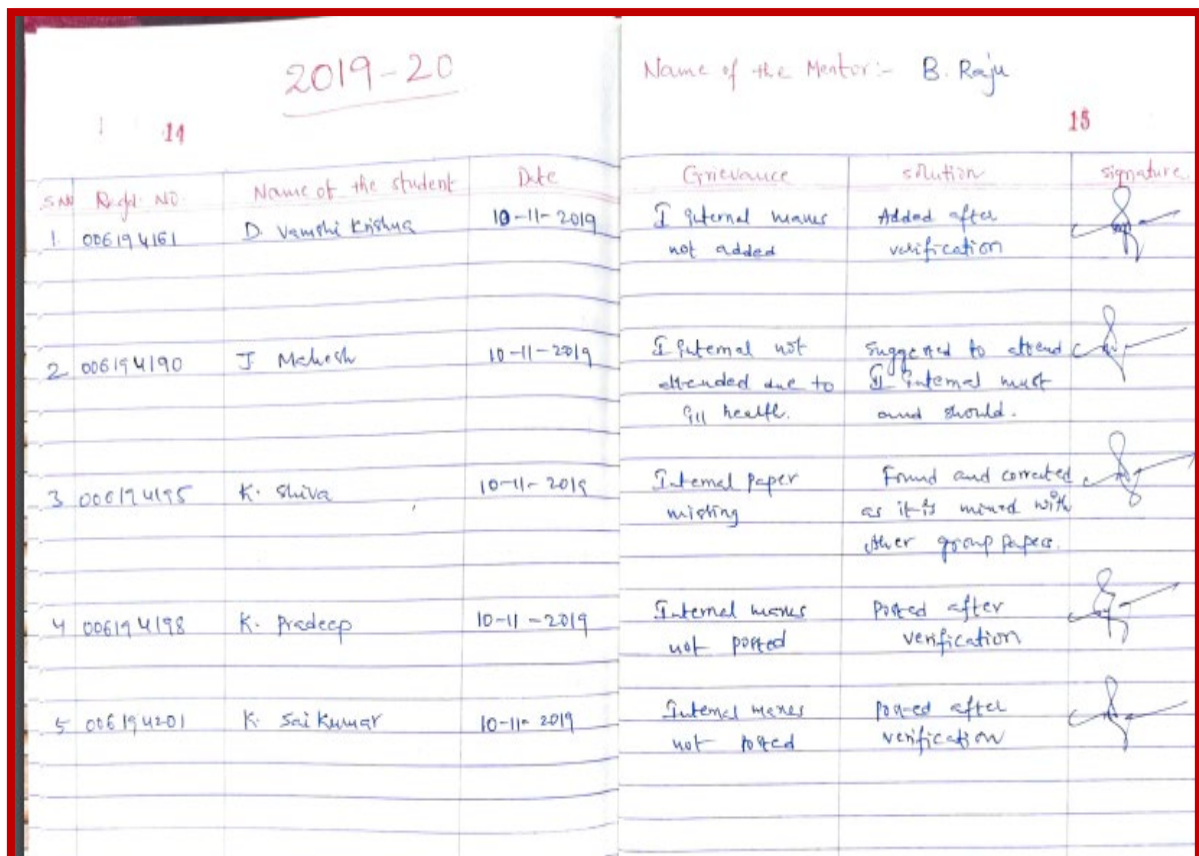 2019-20
Name of the Mentor:- B. Raju
14
15
S.No Regd. NO. Name of the student Date Grievance solution signature
1 006194161 D. Vamshi Krishna 10-11-2019 I Internal marks Added after
not added verification
2 006194190 J Mahesh 10-11-2019 I Internal not suggested to attend
attended due to II Internal must
ill health. and should.
3 006194195 K. Shiva 10-11-2019 Internal paper Found and corrected
missing as it is mixed with
other group papers.
4 006194198 K. Pradeep 10-11-2019 Internal marks Posted after
not posted verification
5 006194201 K. Sai Kumar 10-11-2019 Internal marks posted after
not posted verification